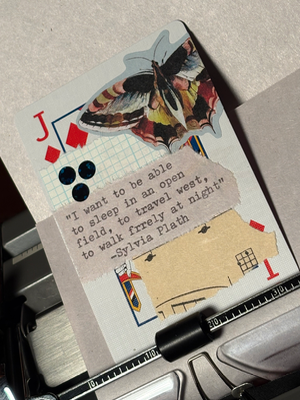 J
"I want to be able
to sleep in an open
field, to travel west,
to walk frrely at night"
-Sylvia Plath
J